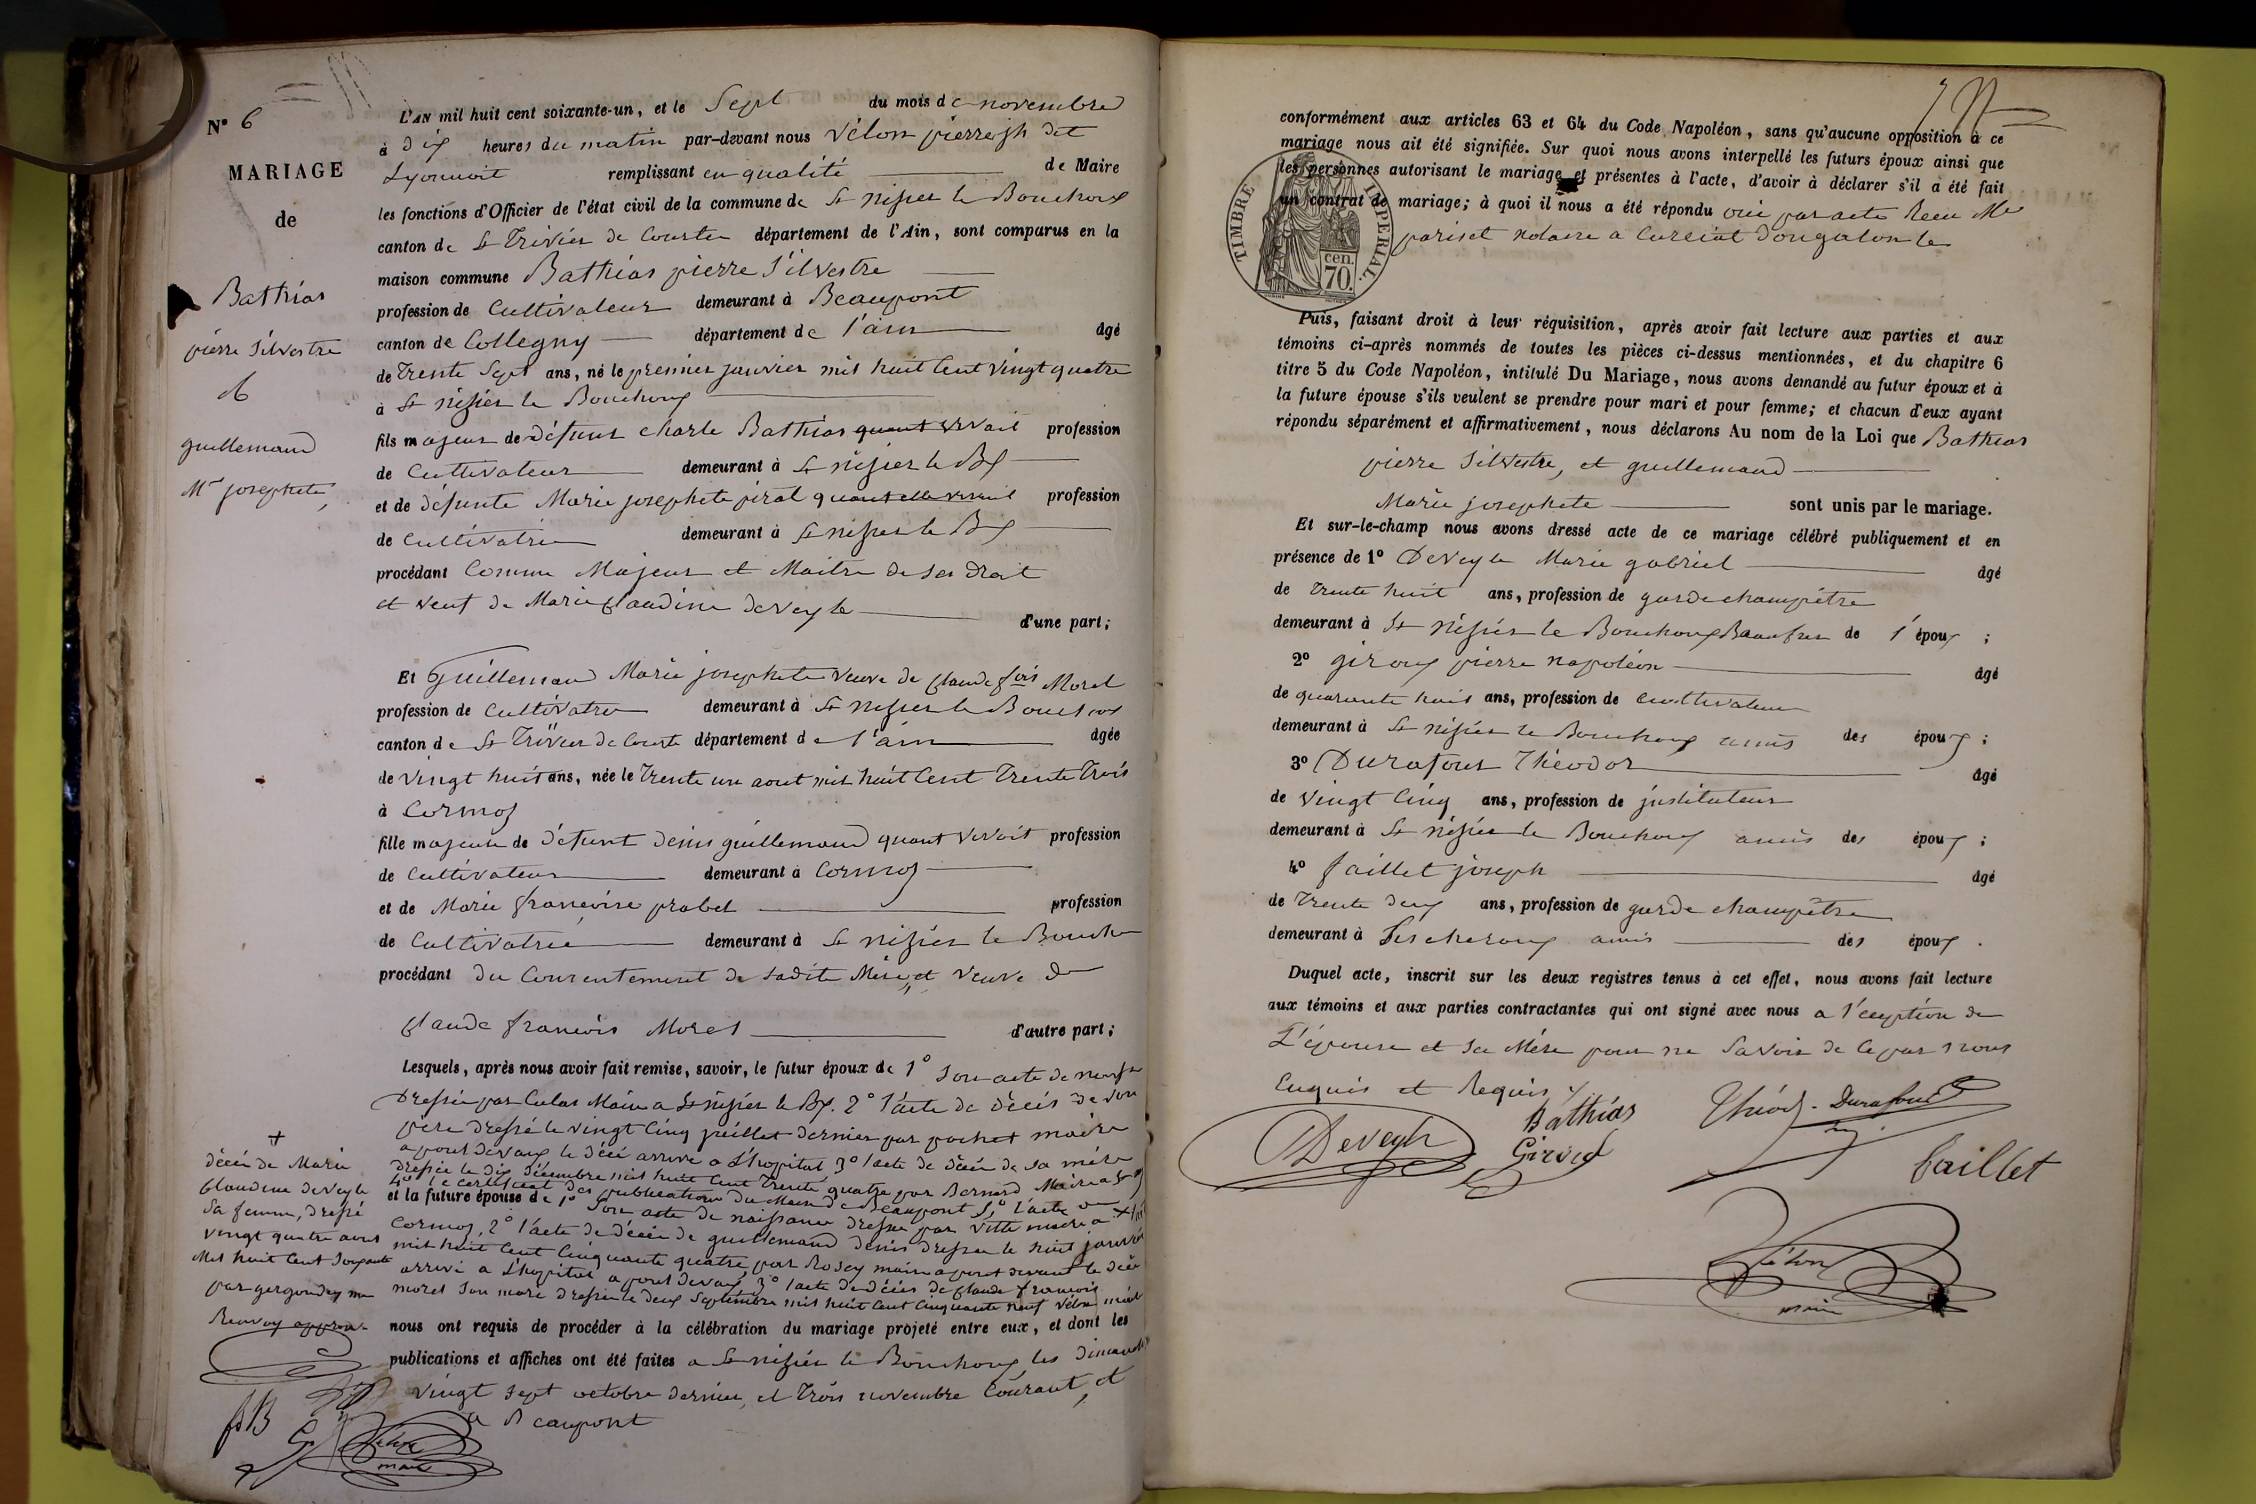 N° 6
MARIAGE
de
Bathias
pierre Silvestre
&
guillemaud
Mie josephete
L'AN mil huit cent soixante-un, et le Sept du mois de novembre
à dix heures du matin par-devant nous Vélon pierre jh dit
Lyonnoit remplissant en qualité de Maire
les fonctions d'Officier de l'état civil de la commune de St nisier le Bouchoux
canton de St Trivier de Courte département de l'Ain, sont comparus en la
maison commune Bathias pierre Silvestre
profession de Cultivateur demeurant à Beaupont
canton de Collegny département de l'ain âgé
de Trente Sept ans, né le premier janvier mil huit Cent Vingt quatre
à St nisier le Bouchoux
fils majeur de défunt charle Bathias quant vivait profession
de Cultivateur demeurant à St nisier le Bx
et de défunte Marie josephete pirat quant elle vivait profession
de Cultivatrice demeurant à St nisier le Bx
procédant Comme Majeur et Maitre de ses droit
et veuf de Marie Claudine deveyle d'une part;
Et Guillemaud Marie josephete veuve de Claude fois Morel
profession de Cultivatrice demeurant à St nisier le Bouchoux
canton de St Trivier de Courte département de l'ain âgée
de Vingt huit ans, née le Trente un aout mil huit Cent Trente Trois
à Cormoz
fille majeure de défunt denis guillemaud quant vivoit profession
de Cultivateur demeurant à Cormoz
et de Marie françoise probet profession
de Cultivatrice demeurant à St nisier le Boucho
procédant du Consentement de sadite Mère, et veuve de
Claude françois Morel d'autre part;
Lesquels, après nous avoir fait remise, savoir, le futur époux de 1° Son acte de naissa
Dressée par Maire a St nisier le Bx. 2° l'acte de décès de son
père dressé le vingt Cinq juillet dernier par pochet maire
a pont devaux le décè arrivé a L'hopital 3° l'acte de décè de sa mère
dressée le dix décembre mil huit Cent Trente quatre par Bernard Maire a St
4° le certificat des publications du Maire de Beaupont 5° l'acte de +
et la future épouse de 1° Son acte de naissance dressée par Vitte maire a
Cormoz, 2° l'acte de décée de guillemaud denis dressée le huit janvier
mil huit Cent Cinquante quatre par Rosey maire a pont devaux le décè
arrivé a L'hopital a pont devaux 3° l'acte de décès de Claude françois
morel Son mari dressée le deux Septembre mil huit Cent Cinquante neuf Vélon
nous ont requis de procéder à la célébration du mariage projeté entre eux, et dont les
publications et affiches ont été faites a St nisier le Bouchoux les dimanches
vingt sept octobre dernier, et Trois novembre Courant, et
a Beaupont
+
décée de Marie
Claudine deveyle
Sa femme, dressé
vingt quatre aout
Mil huit Cent Soixante
par gergondey
Renvoy approu
B
Vélon
maire
conformément aux articles 63 et 64 du Code Napoléon, sans qu'aucune opposition à ce
mariage nous ait été signifiée. Sur quoi nous avons interpellé les futurs époux ainsi que
les personnes autorisant le mariage et présentes à l'acte, d'avoir à déclarer s'il a été fait
un contrat de mariage; à quoi il nous a été répondu oui par acte Recu Me
pariset notaire a Curciat dongalon le
TIMBRE IMPERIAL.
cen. 70.
Puis, faisant droit à leur réquisition, après avoir fait lecture aux parties et aux
témoins ci-après nommés de toutes les pièces ci-dessus mentionnées, et du chapitre 6
titre 5 du Code Napoléon, intitulé Du Mariage, nous avons demandé au futur époux et à
la future épouse s'ils veulent se prendre pour mari et pour femme; et chacun d'eux ayant
répondu séparément et affirmativement, nous déclarons Au nom de la Loi que Bathias
pierre Silvestre, et guillemaud
Marie josephete sont unis par le mariage.
Et sur-le-champ nous avons dressé acte de ce mariage célébré publiquement et en
présence de 1° Deveyle Marie gabriel âgé
de Trente huit ans, profession de garde champêtre
demeurant à St nisier le Bouchoux Beaufrer de l'époux ;
2° giroux pierre napoléon âgé
de quarante huit ans, profession de cultivateur
demeurant à St nisier le Bouchoux amis des époux ;
3° Durafour Théodor âgé
de Vingt Cinq ans, profession de instituteur
demeurant à St nisier le Bouchoux amis des époux ;
4° faillet joseph âgé
de Trente deux ans, profession de garde champêtre
demeurant à Lescheroux amis des époux .
Duquel acte, inscrit sur les deux registres tenus à cet effet, nous avons fait lecture
aux témoins et aux parties contractantes qui ont signé avec nous a l'éception de
L'épouse et sa Mére pour ne savoir de ce par nous
Enquis et Requis
Deveyle Bathias Théod. Durafour
Giroud faillet
Vélon
maire